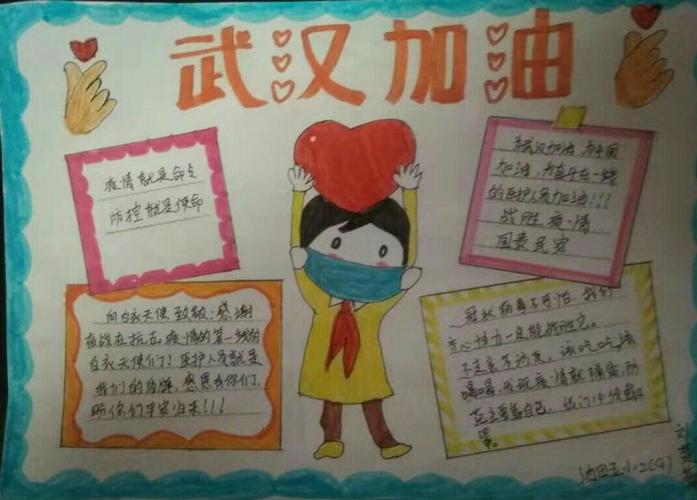 武汉加油
疫情就是命令
防控就是使命
为武汉加油 为中国
加油，为奋斗在一线
的医护人员加油!!!
战胜疫情
国泰民安
向白衣天使致敬：感谢
奋战在抗击疫情的第一线的
白衣天使们！医护人员就是
我们的 感恩有你们，
盼你们平安归来!!!
冠状病毒不可怕，我们
众心协力一定能战胜它。
不走亲不访友，该吃吃，该
喝喝，发现疫情就 防
范主要靠自己，出门
罩。
油田五小二(9)